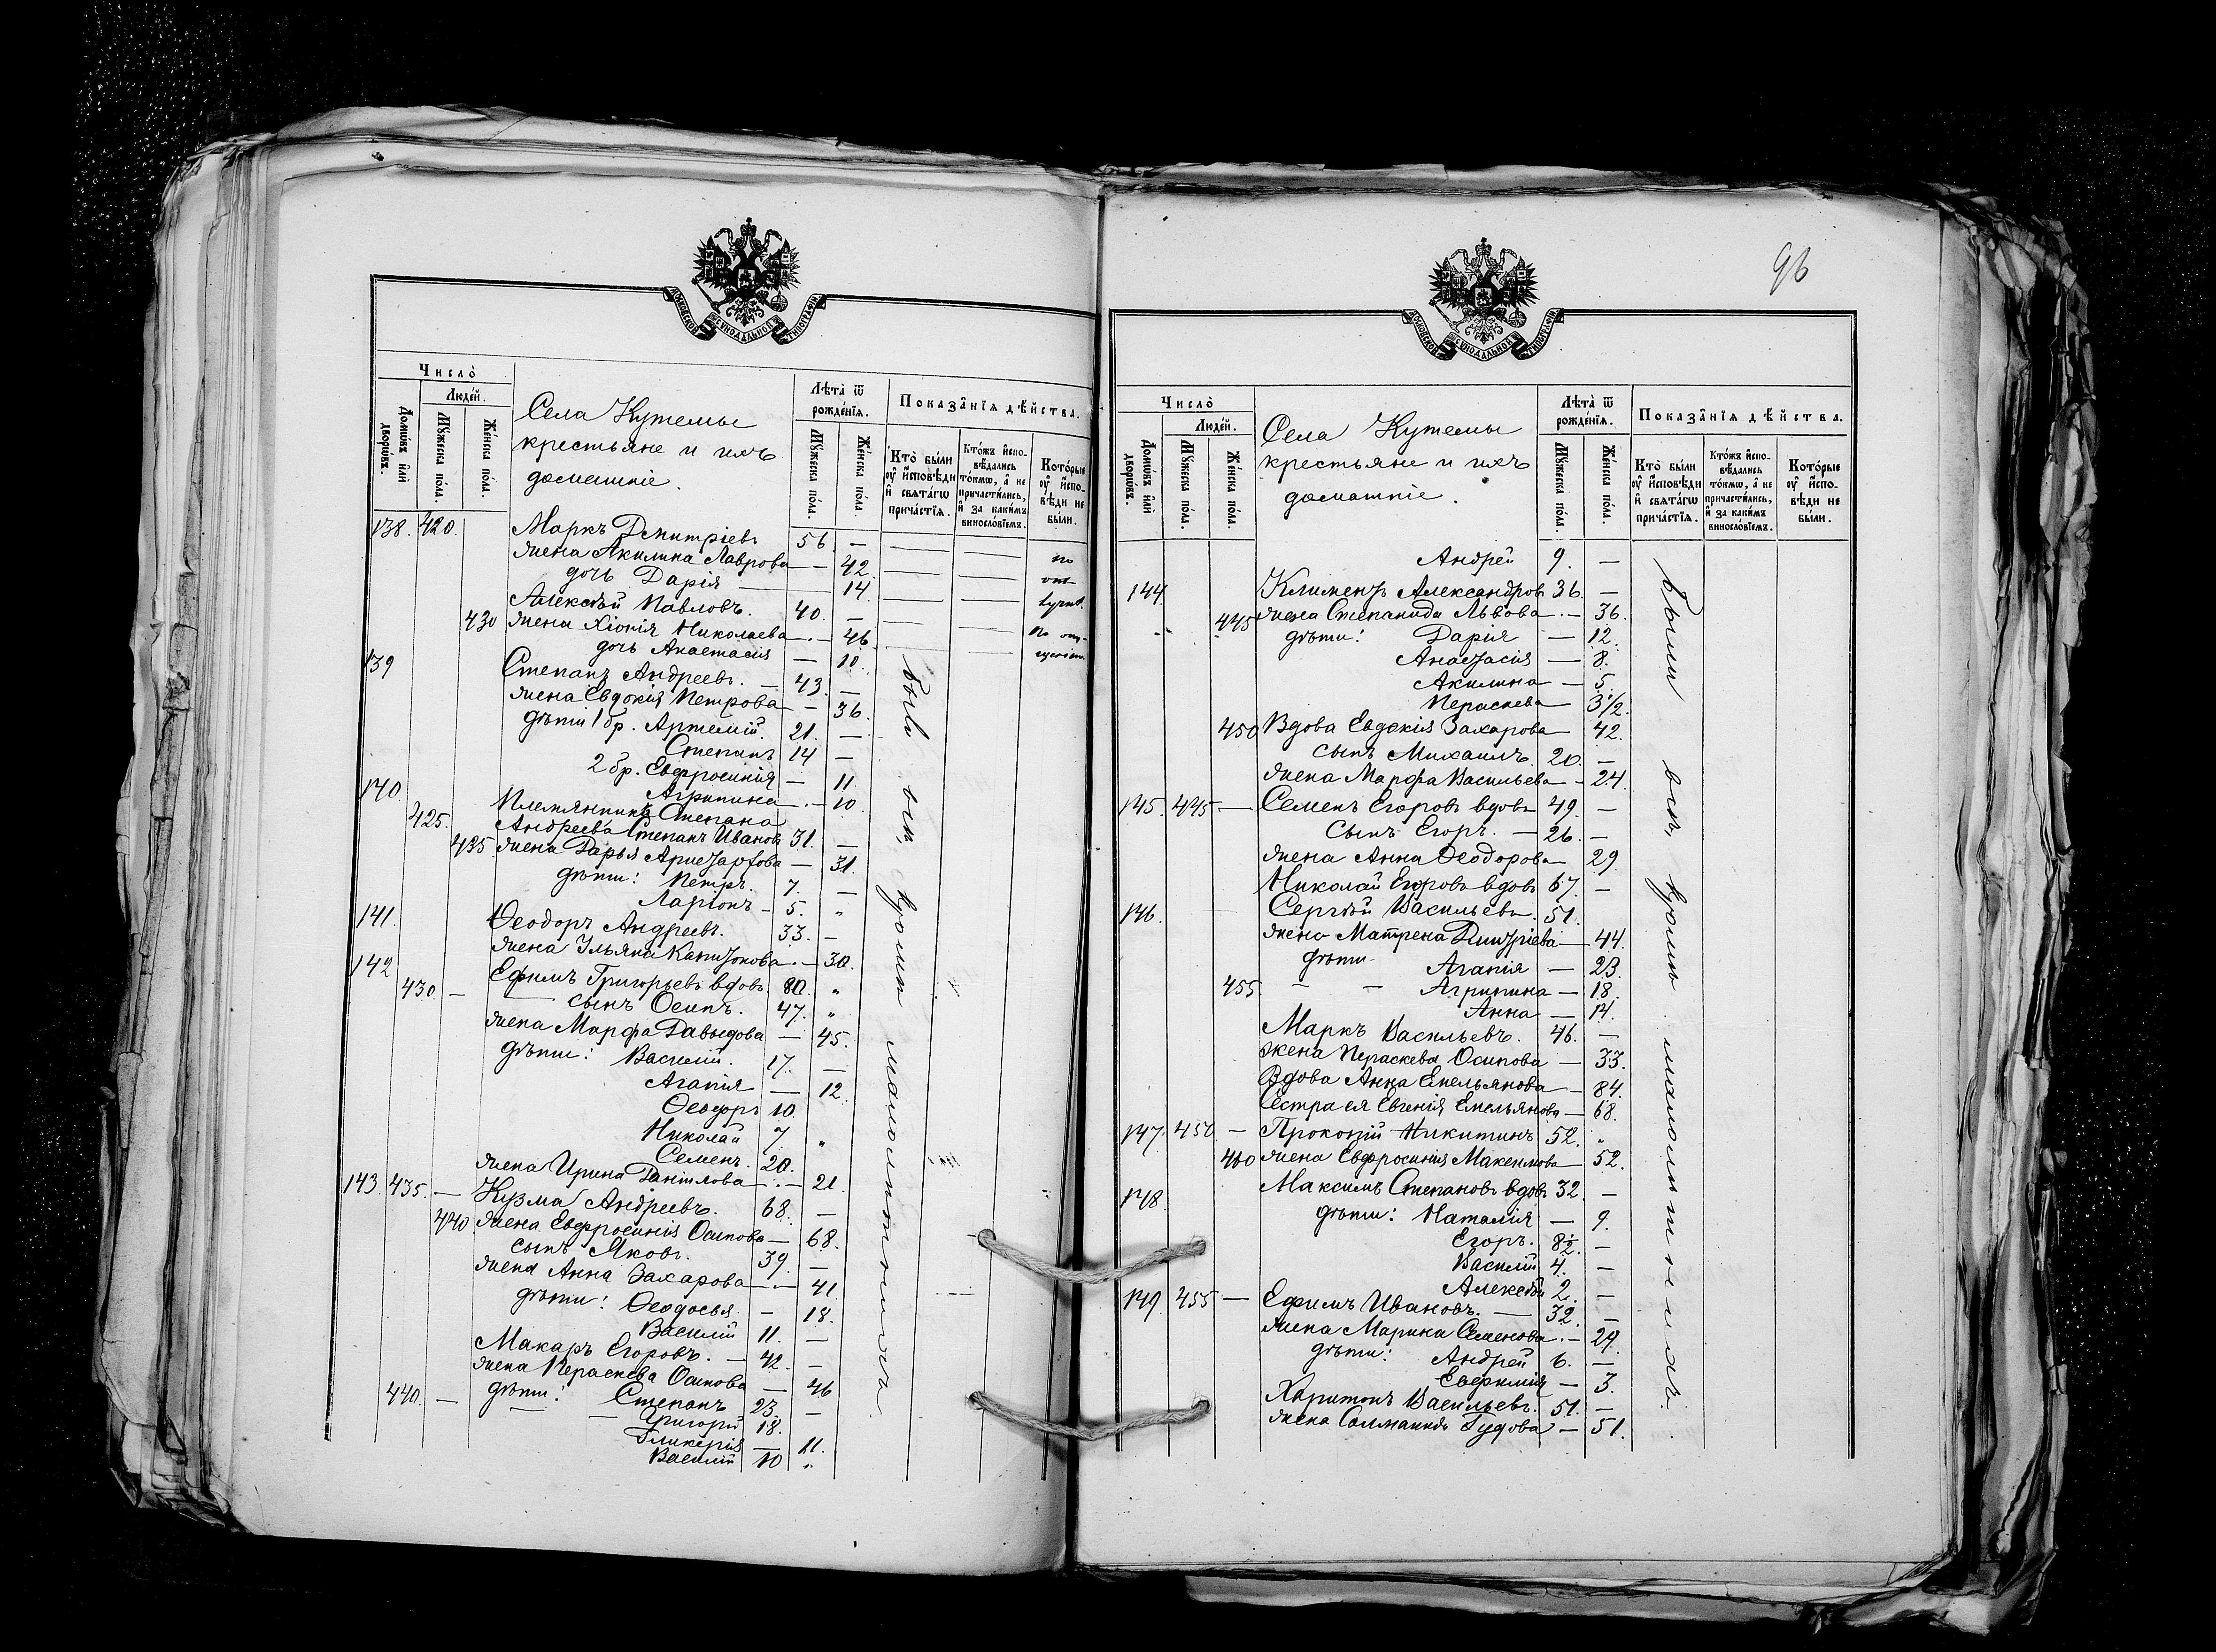 МОСКОВСКОЙ СѴНОДАЛЬНОЙ ТИПОГРАФІИ
Число̀
Людéй.
Домѡвъ и҆лѝ дворѡвъ.
Мꙋ́жеска по́ла.
Же́нска по́ла.
Села Кутемы
крестьяне и ихъ
домашніе.
Лѣта̀ ѿ рожде́нїѧ.
Мꙋ́жеска по́ла.
Же́нска по́ла.
Показа̑нїѧ дѣ́йства.
Кто̀ бы́ли оу҆ и҆сповѣ́ди и҆ свѧта́гѡ прича́стїѧ.
Кто́жъ и҆сповѣ́дались то́кмѡ, а҆ не причасти́лись, и҆ за каки́мъ винослóвїемъ.
Кото́рые оу҆ и҆сповѣ́ди не бы́ли.
138. 420. Маркъ Дмитріевъ 56. —
жена Акилина Лаврова — 42.
дочь Дарія — 14.
Алексѣй Павловъ. 40. —
430 жена Хіонія Николаева — 46.
дочь Анастасія — 10.
139 Степанъ Андреевъ. 43. —
жена Евдокія Петрова — 36.
дѣти 1 бр. Артемій. 21. —
Степанъ 14 —
2 бр. Евфросинія — 11.
Агрипина — 10.
140. Племянникъ Степана
425. Андреева Степанъ Ивановъ 31. —
435 жена Дарья — 31.
дѣти: Петръ. 7. —
Ларіонъ 5. "
141. Ѳеодоръ Андреевъ. 33. —
жена Ульяна — 30.
142 Ефимъ Григорьевъ вдовъ 80. "
430. — сынъ Осипъ. 47. "
жена Марфа Давыдова — 45.
дѣти: Василій. 17. —
Агапія — 12.
Ѳеодоръ 10.
Николай 7. "
Семенъ. 20.
жена Ирина Данилова — 21.
143. 435. — Кузма Андреевъ. 68. —
440 жена Евфросинія Осипова — 68.
сынъ Яковъ. 39. —
жена Анна Захарова — 41
дѣти: Ѳеодосья. — 18.
Василій 11. —
Макаръ Егоровъ. — 42. —
жена Пераскева Осипова — 46
440. — дѣти: Степанъ 23. —
Григорій 18.
Гликерія — 11.
Василій 10 "
по
отсутствію
были всѣ кромѣ малолѣтнихъ.
96
МОСКОВСКОЙ СѴНОДАЛЬНОЙ ТИПОГРАФІИ
Число̀
Людéй.
Домѡвъ и҆лѝ дворѡвъ.
Мꙋ́жеска по́ла.
Же́нска по́ла.
Села Кутемы
крестьяне и ихъ
домашніе.
Лѣта̀ ѿ рожде́нїѧ.
Мꙋ́жеска по́ла.
Же́нска по́ла.
Показа̑нїѧ дѣ́йства.
Кто̀ бы́ли оу҆ и҆сповѣ́ди и҆ свѧта́гѡ прича́стїѧ.
Кто́жъ и҆сповѣ́дались то́кмѡ, а҆ не причасти́лись, и҆ за каки́мъ винослóвїемъ.
Кото́рые оу҆ и҆сповѣ́ди не бы́ли.
Андрей 9. —
144. Климентъ Александровъ 36. —
445 жена Степанида Львова — 36.
дѣти: Дарія — 12.
Анастасія — 8.
Акилина — 5.
Пераскева 3 1/2.
450 Вдова Евдокія Захарова — 42.
сынъ Михаилъ. 20. —
жена Марфа Васильева — 24.
145. 445 — Семенъ Егоровъ вдовъ 49. —
сынъ Егоръ. — 26. —
жена Анна Ѳеодорова — 29.
Николай Егоровъ вдовъ 67. —
146. Сергѣй Васильевъ. 51.
жена Матрена Дмитріева — 44.
дѣти Агапія — 23.
455. Агрипина — 18.
Анна — 14.
Маркъ Васильевъ. 46. —
жена Пераскева Осипова — 33.
Вдова Анна Емельянова — 84.
Сестра ея Евгенія Емельянова — 68.
147. 450. — Прокопій Никитинъ 52. "
460 жена Евфросинія Максимова — 52.
148. Максимъ Степановъ вдовъ 32. —
дѣти: Наталія — 9.
Егоръ. 8 1/2. —
Василій 4. —
Алексѣй 2. —
149. 455 — Ефимъ Ивановъ. — 32. —
жена Марина Семенова — 29.
дѣти: Андрей 6. —
Евфимія — 3.
Харитонъ Васильевъ. 51. —
жена Гудова — 51.
были всѣ кромѣ малолѣтнихъ.